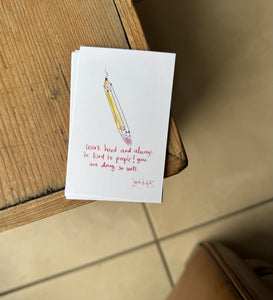 work hard and always
be kind to people! you
are doing so well